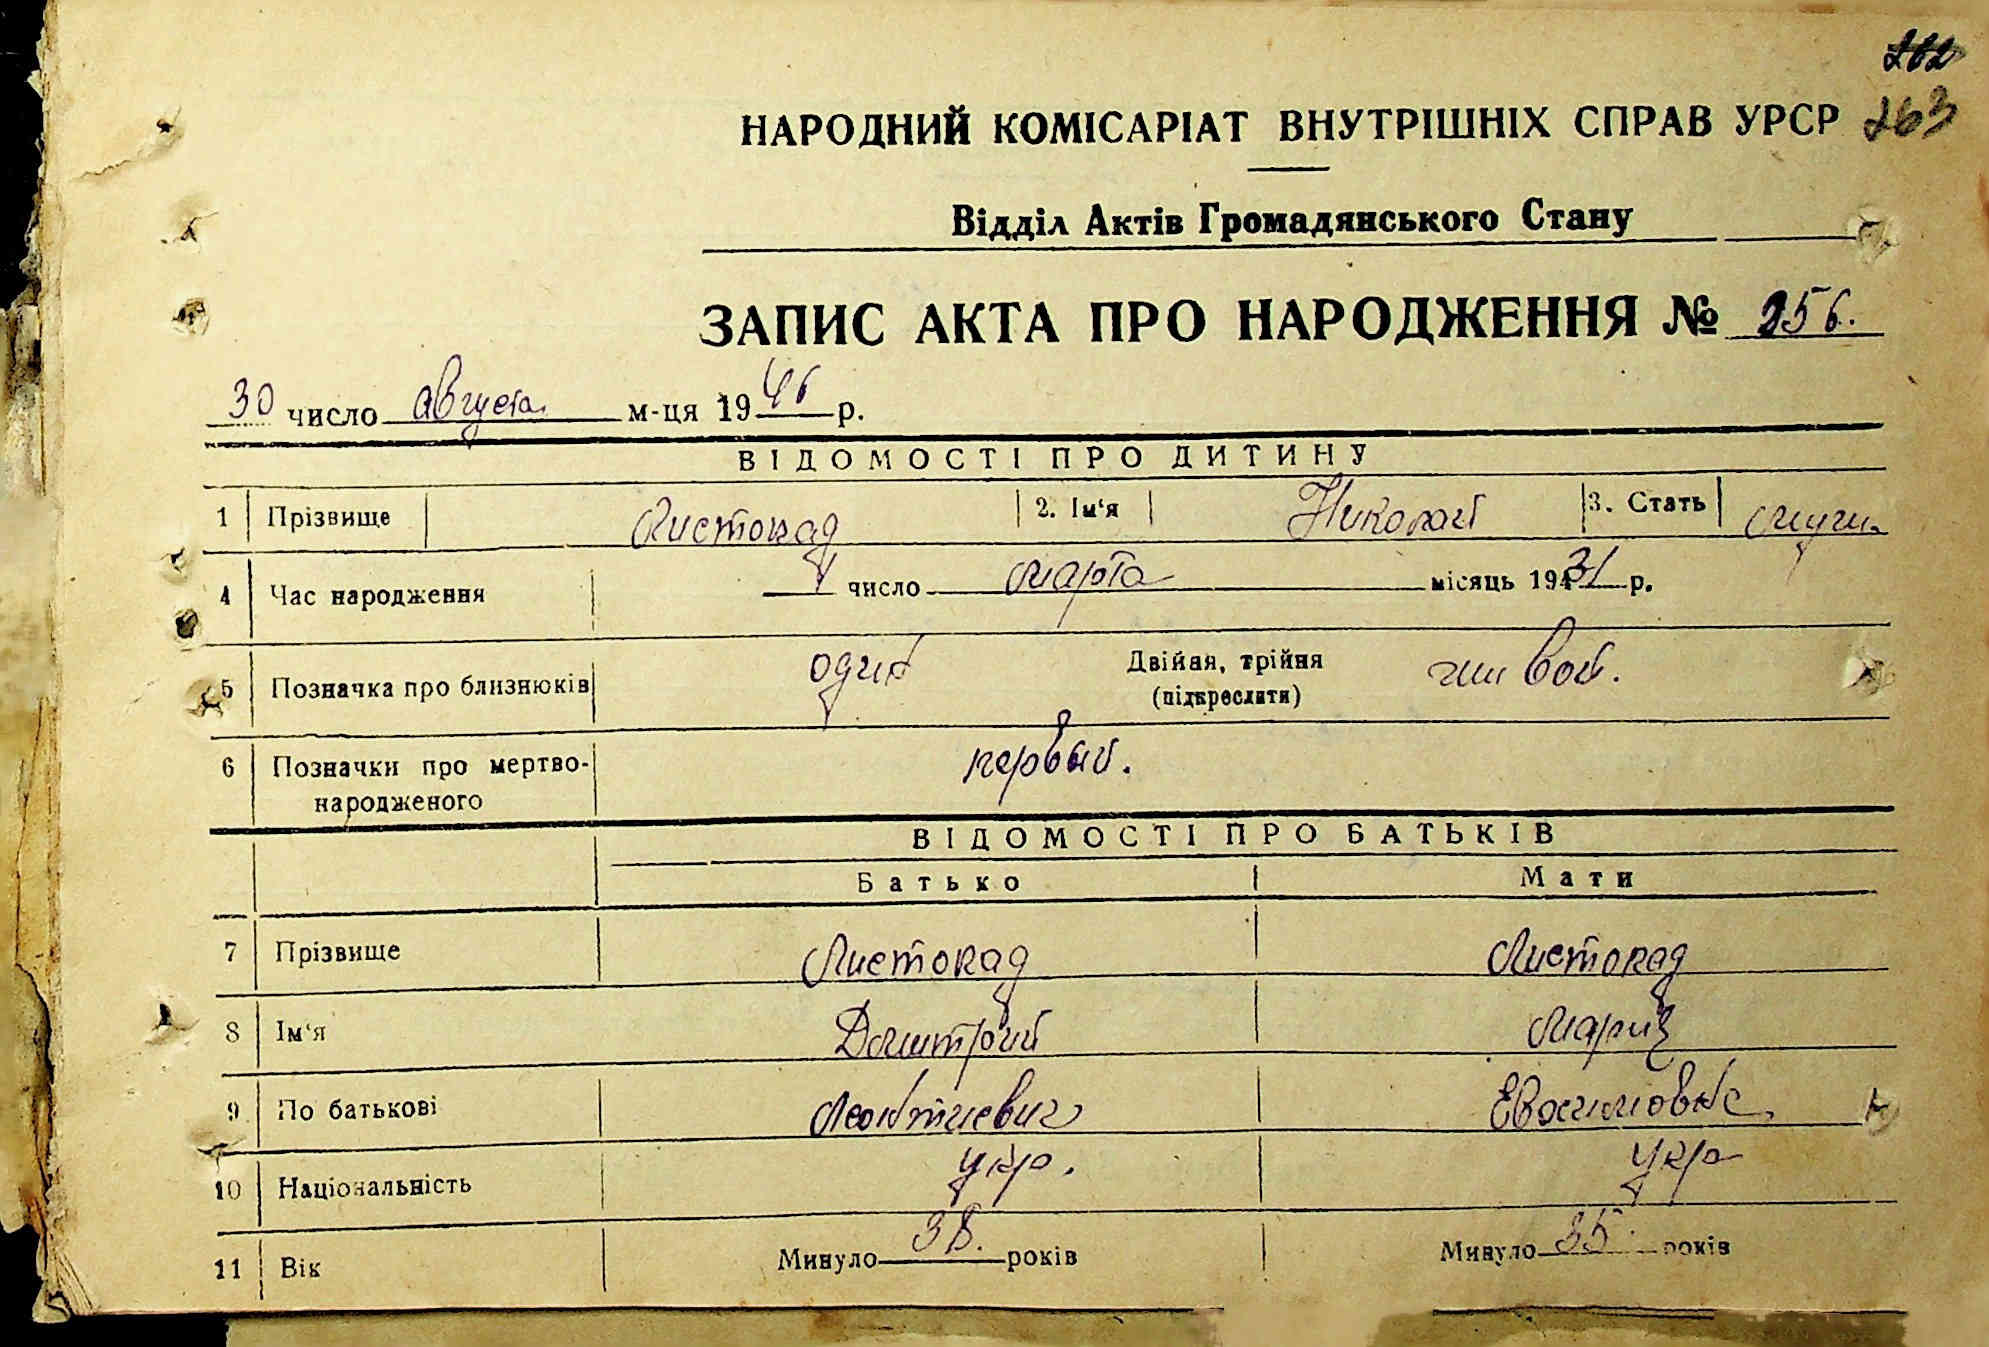 263
НАРОДНИЙ КОМІСАРІАТ ВНУТРІШНІХ СПРАВ УРСР
Відділ Актів Громадянського Стану
ЗАПИС АКТА ПРО НАРОДЖЕННЯ № 256.
30 число августа м-ця 1946 р.
ВІДОМОСТІ ПРО ДИТИНУ
1 Прізвище Листопад 2. Ім'я Николай 3. Стать мужч.
4 Час народження 1 число марта місяць 1931 р.
5 Позначка про близнюків один Двійня, трійня (підкреслити) живой.
6 Позначки про мертво-
народженого первый.
ВІДОМОСТІ ПРО БАТЬКІВ
Батько Мати
7 Прізвище Листопад Листопад
8 Ім'я Дмитрий Мария
9 По батькові Леонтиевич
10 Національність укр. укр
11 Вік Минуло 38. років Минуло 35. років